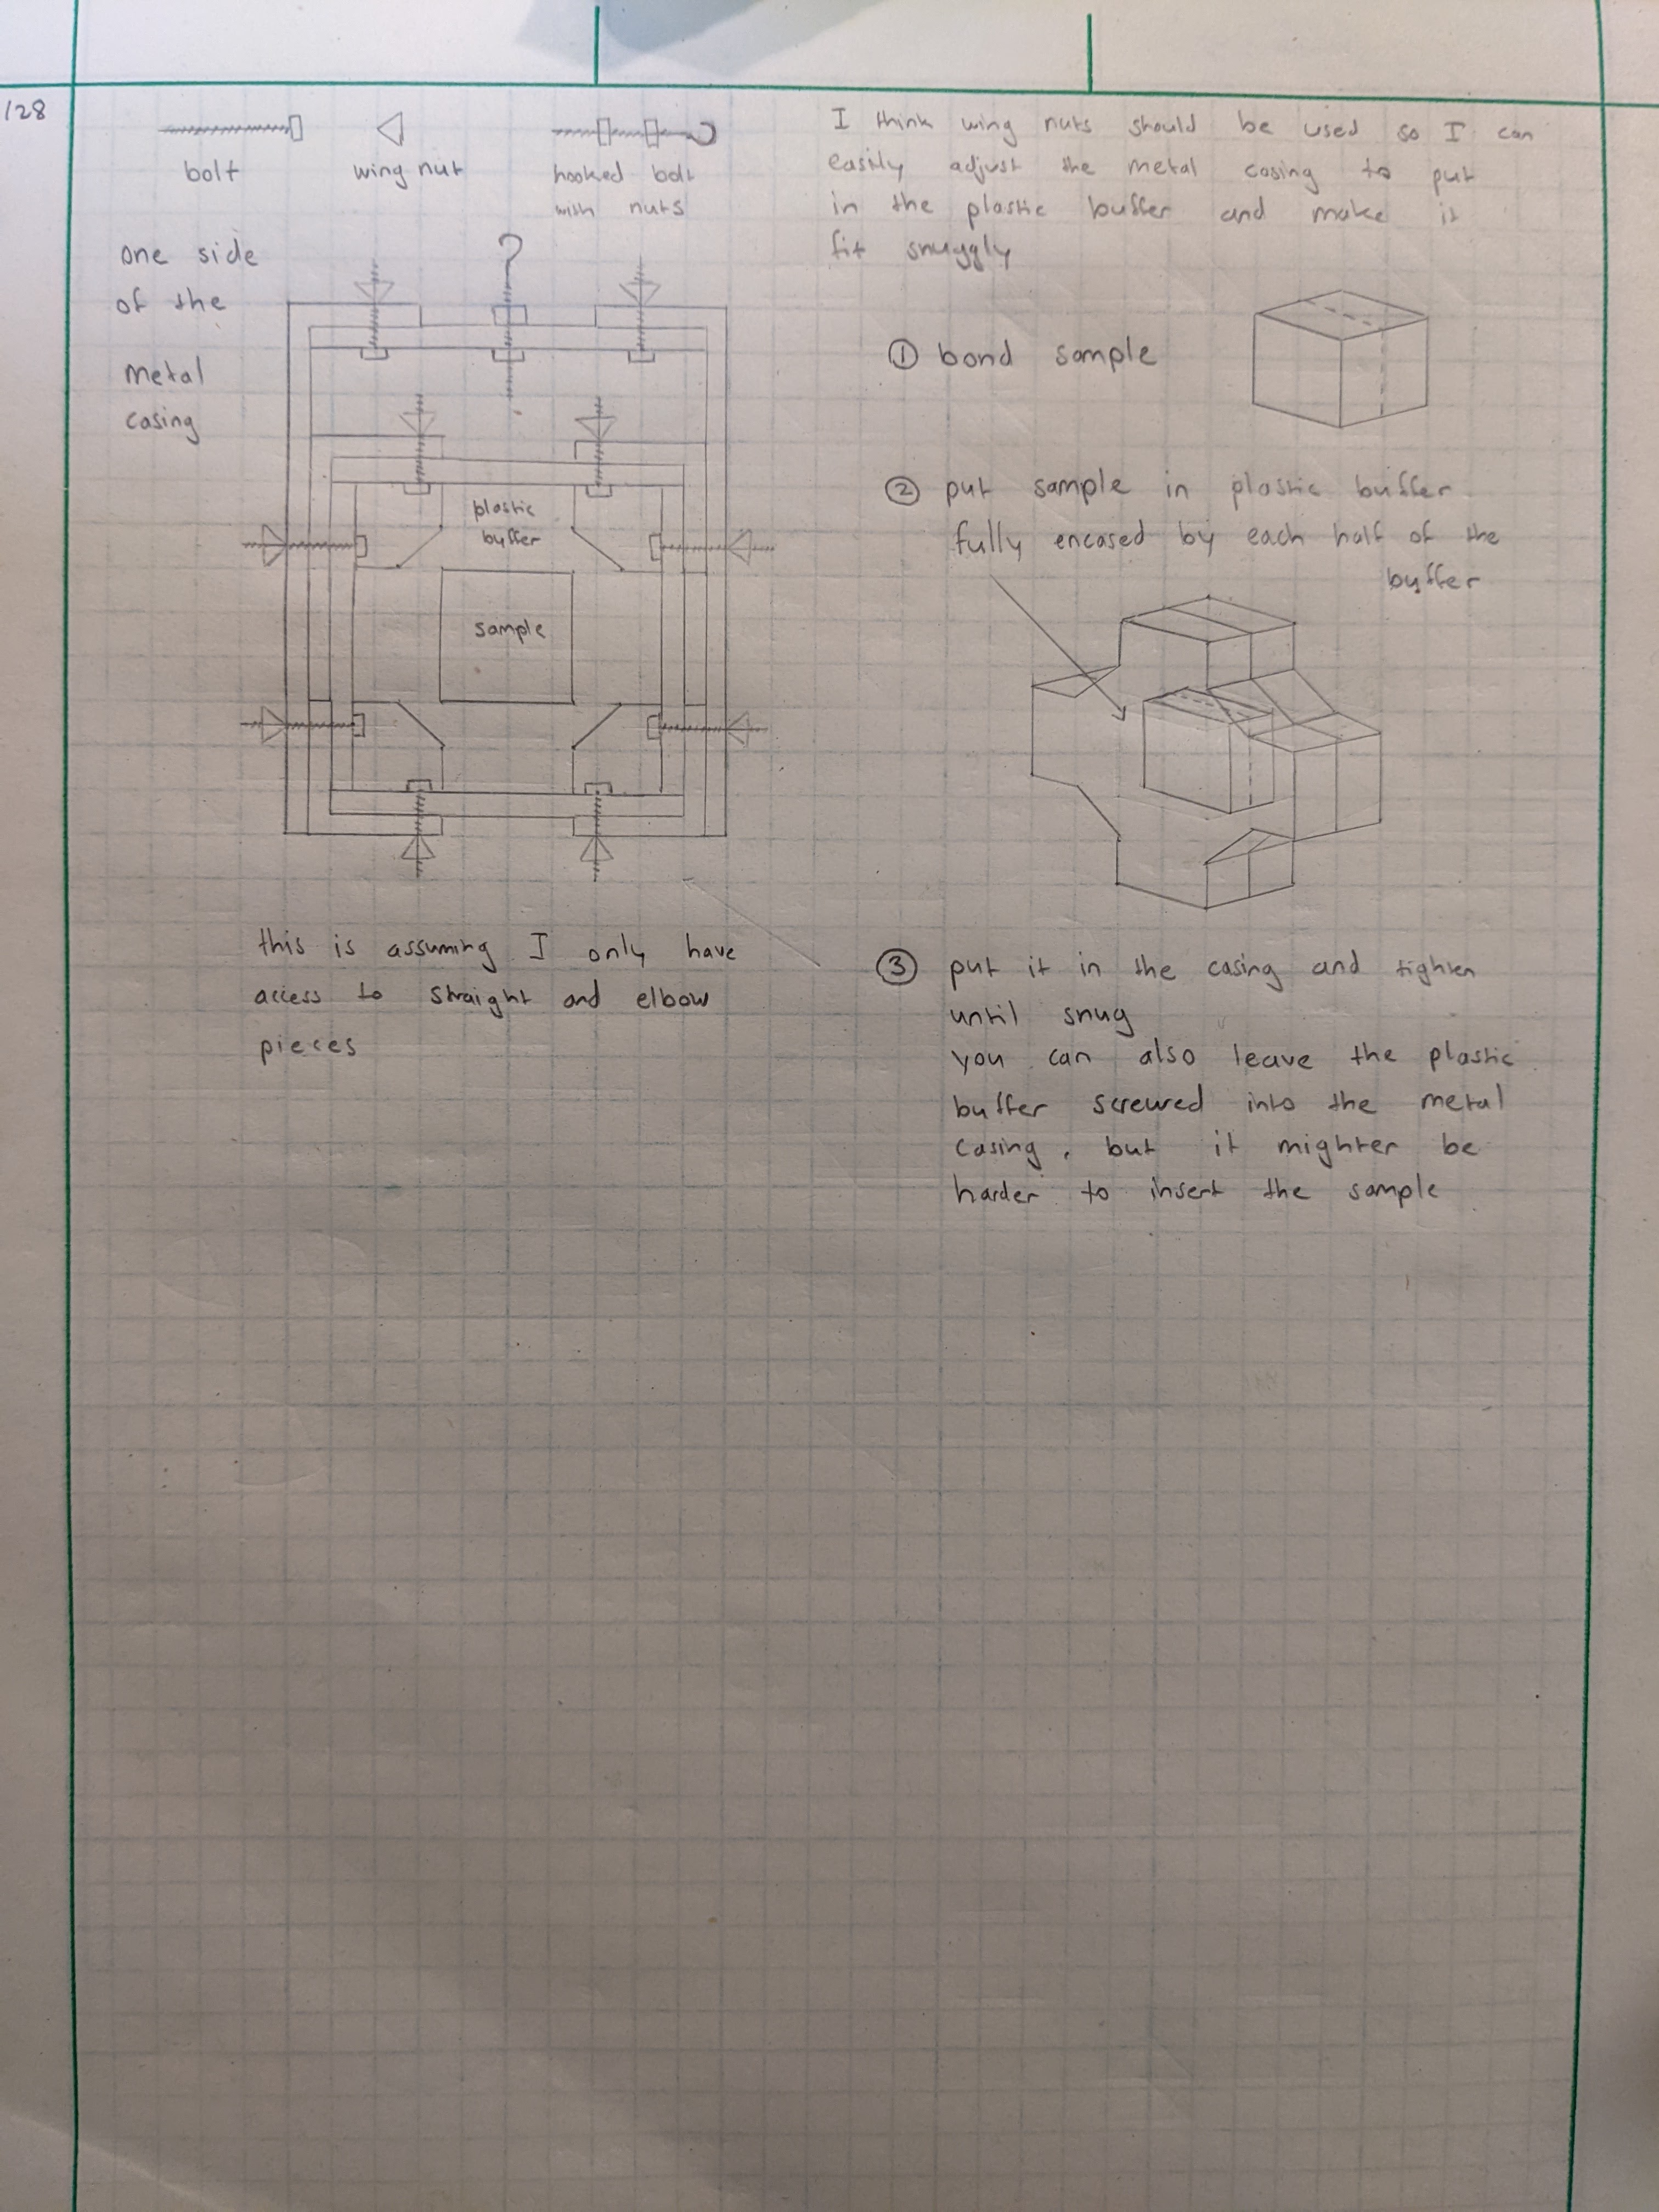 128
bolt
wing nut
hooked bolt
with nuts
one side
of the
metal
casing
plastic
buffer
sample
this is assuming I only have
access to straight and elbow
pieces
I think wing nuts should be used so I can
easily adjust the metal casing to put
in the plastic buffer and make it
fit snuggly
① bond sample
② put sample in plastic buffer
fully encased by each half of the
buffer
③ put it in the casing and tighten
until snug
you can also leave the plastic
buffer screwed into the metal
casing, but it mighter be
harder to insert the sample